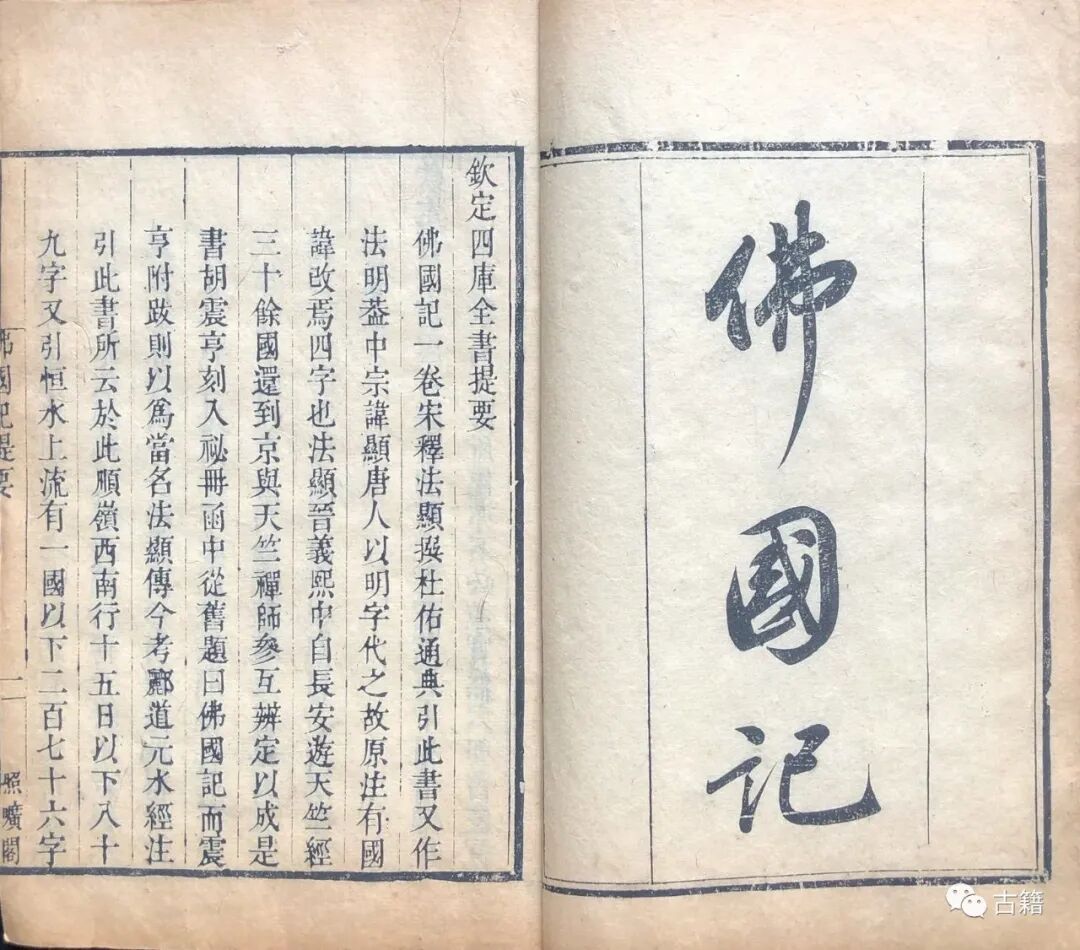 佛國記
欽定四庫全書提要
佛國記一卷宋釋法顯撰杜佑通典引此書又作
法明葢中宗諱顯唐人以明字代之故原注有國
諱改焉四字也法顯晉義熙中自長安遊天竺經
三十餘國還到京與天竺禪師參互辨定以成是
書胡震亨刻入祕冊函中從舊題曰佛國記而震
亨附跋則以爲當名法顯傳今考酈道元水經注
引此書所云於此順嶺西南行十五日以下八十
九字又引恒水上流有一國以下二百七十六字
佛國記提要
一
照曠閣
古籍